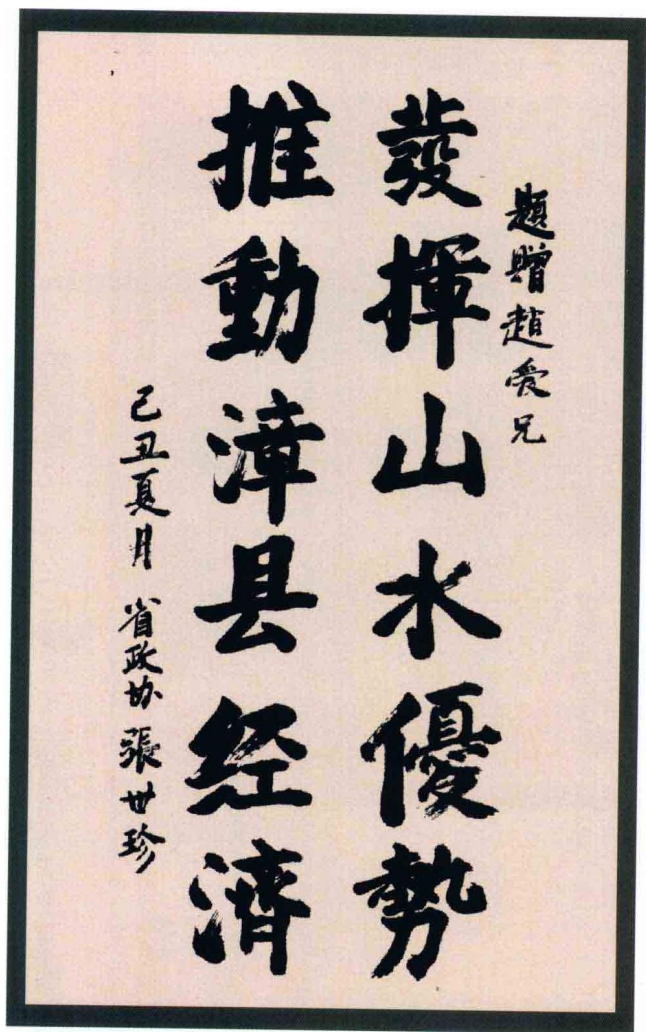 題贈趙爱兄
發揮山水優勢
推動漳县经濟
己丑夏月 省政协 張世珍